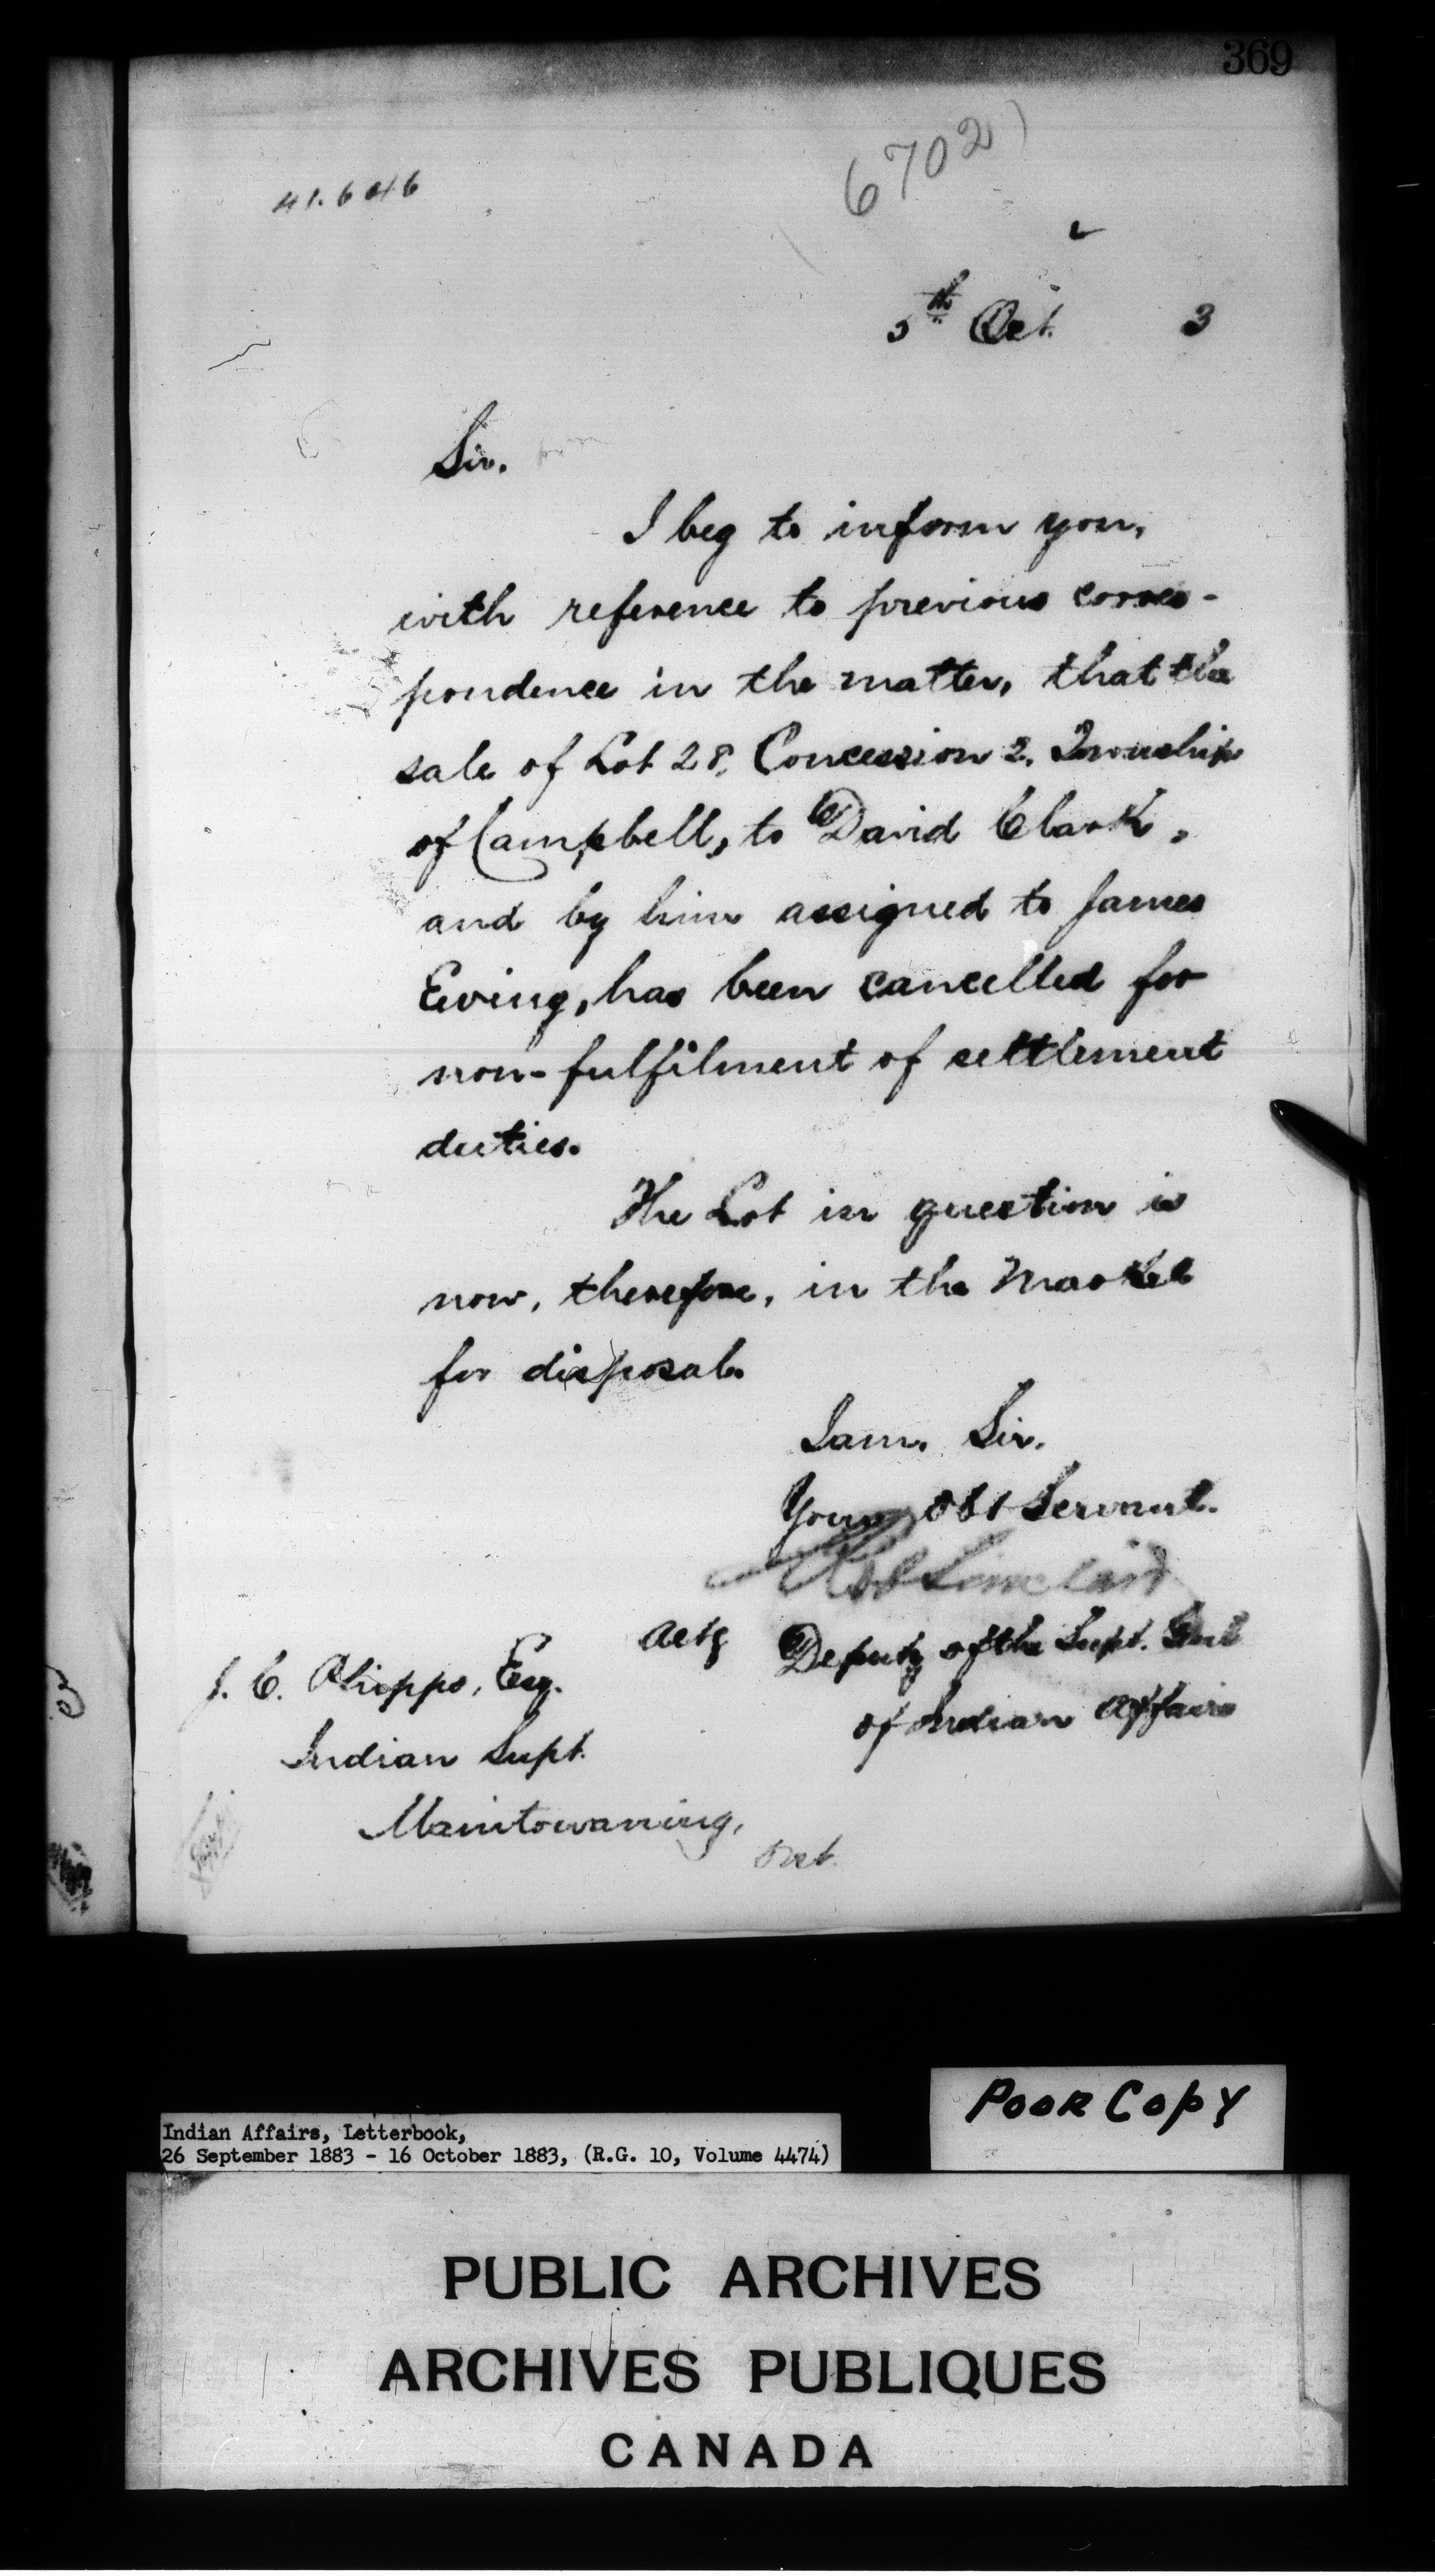 369
6702
41.646
5th Oct. 3
Sir.
I beg to inform you,
with reference to previous corres-
pondence in the matter, that the
sale of Lot 28, Concession 2, Township
of Campbell, to David Clark,
and by him assigned to James
Ewing, has been cancelled for
non-fulfilment of settlement
duties.
The Lot in question is
now, therefore, in the Market
for disposal.
I am, Sir.
Your Obt Servant.
Sinclair
Actg Deputy of the Supt. Genl
of Indian Affairs
J. C. Phipps, Esq.
Indian Supt.
Manitowaning,
Ont.
POOR COPY
Indian Affairs, Letterbook,
26 September 1883 - 16 October 1883, (R.G. 10, Volume 4474)
PUBLIC ARCHIVES
ARCHIVES PUBLIQUES
CANADA